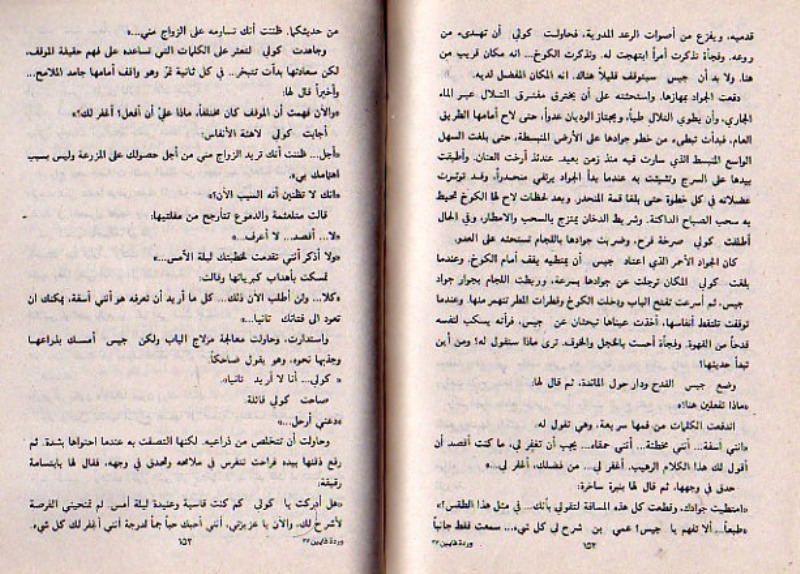 قدميه، ويفزع من أصوات الرعد المدوية، فحاولت كولي أن تهدىء من
روعه. وفجأة تذكرت أمراً ابتهجت له. وتذكرت الكوخ... انه مكان قريب من
هنا. ولا بد أن جيس سيتوقف قليلاً هناك. انه المكان المفضل لديه.
دفعت الجواد بمهازها. واستحثته على أن يخترق مفترق التلال عبر الماء
الجاري، وأن يطوي التلال طياً، ويجتاز الوديان عدواً، حتى لاح أمامها الطريق
العام. فبدأت تبطىء من خطو جوادها على الأرض المنبسطة، حتى بلغت السهل
الواسع المنبسط الذي سارت فيه منذ زمن بعيد. عندئذ أرخت العنان. وأطبقت
بيدها على السرج وتشبثت به عندما بدأ الجواد يرتقي منحدراً، وقد توترت
عضلاته في كل خطوة حتى بلغا قمة المنحدر. وبعد لحظات لاح لها الكوخ تحيط
به سحب الصباح الداكنة. وشريط الدخان يمتزج بالسحب والامطار، وفي الحال
أطلقت كولي صرخة فرح، وضربت جوادها باللجام تستحثه على العدو.
كان الجواد الأحمر الذي اعتاد جيس أن يمتطيه يقف أمام الكوخ. وعندما
بلغت كولي المكان ترجلت عن جوادها بسرعة، وربطت اللجام بجوار جواد
جيس، ثم أسرعت تفتح الباب ودخلت الكوخ وقطرات المطر تنهمر منها. وعندما
توقفت تلتقط أنفاسها، أخذت عيناها تبحثان عن جيس، فرأته يسكب لنفسه
قدحاً من القهوة. وفجأة أحست بالخجل والخوف. ترى ماذا ستقول له؟ ومن أين
تبدأ حديثها؟
وضع جيس القدح ودار حول المائدة، ثم قال لها:
«ماذا تفعلين هنا؟»
اندفعت الكلمات من فمها سريعة، وهي تقول له:
«انني آسفة... أنني مخطئة... أنني حمقاء... يجب أن تغفر لي، ما كنت أقصد أن
أقول لك هذا الكلام الرهيب. أغفر لي... من فضلك، أغفر لي...»
حدق في وجهها، ثم قال لها بنبرة ساخرة:
«امتطيت جوادك، وقطعت كل هذه المسافة لتقولي بأنك... في مثل هذا الطقس؟»
«طبعاً... ألا تفهم يا جيس؟ عمي بن شرح لي كل شيء... سمعت فقط جانباً
١٥٢
وردة قايين ٢٦
من حديثكما. ظننت أنك تساومه على الزواج مني...»
وجاهدت كولي لتعثر على الكلمات التي تساعده على فهم حقيقة الموقف.
لكن سعادتها بدأت تتبخر... في كل ثانية تمر وهو واقف أمامها جامد الملامح...
وأخيراً قال لها:
«والآن فهمت أن الموقف كان مختلفاً، ماذا عليّ أن أفعل؟ أغفر لك؟»
أجابت كولي لاهثة الأنفاس:
«أجل... ظننت أنك تريد الزواج مني من أجل حصولك على المزرعة وليس بسبب
اهتمامك بي».
«انك لا تظنين أنه السبب الآن؟»
قالت متلعثمة والدموع تتأرجح من مقلتيها:
«لا... أقصد... لا أعرف...»
«ولا أذكر أنني تقدمت لخطبتك ليلة الأمس...»
تمسكت بأهداب كبريائها وقالت:
«كلا... ولن أطلب الآن ذلك... كل ما أريد أن تعرفه هو أنني آسفة، يمكنك أن
تعود الى فتاتك تانيا...»
واستدارت، وحاولت معالجة مزلاج الباب ولكن جيس أمسك بذراعها
وجذبها نحوه، وهو يقول ضاحكاً:
«كولي... أنا لا أريد تانيا».
صاحت كولي قائلة:
«دعني أرحل...»
وحاولت أن تتخلص من ذراعيه. لكنها التصقت به عندما احتواها بشدة. ثم
رفع ذقنها بيده فراحت تتفرس في ملامحه وتحدق في وجهه. فقال لها بابتسامة
رقيقة:
«هل أدركت يا كولي كم كنت قاسية وعنيدة ليلة أمس. لم تمنحيني الفرصة
لأشرح لك. والآن يا عزيزتي، أنني أحبك حباً جماً لدرجة أنني أغفر لك كل شيء.
١٥٣
وردة قايين ٢٧